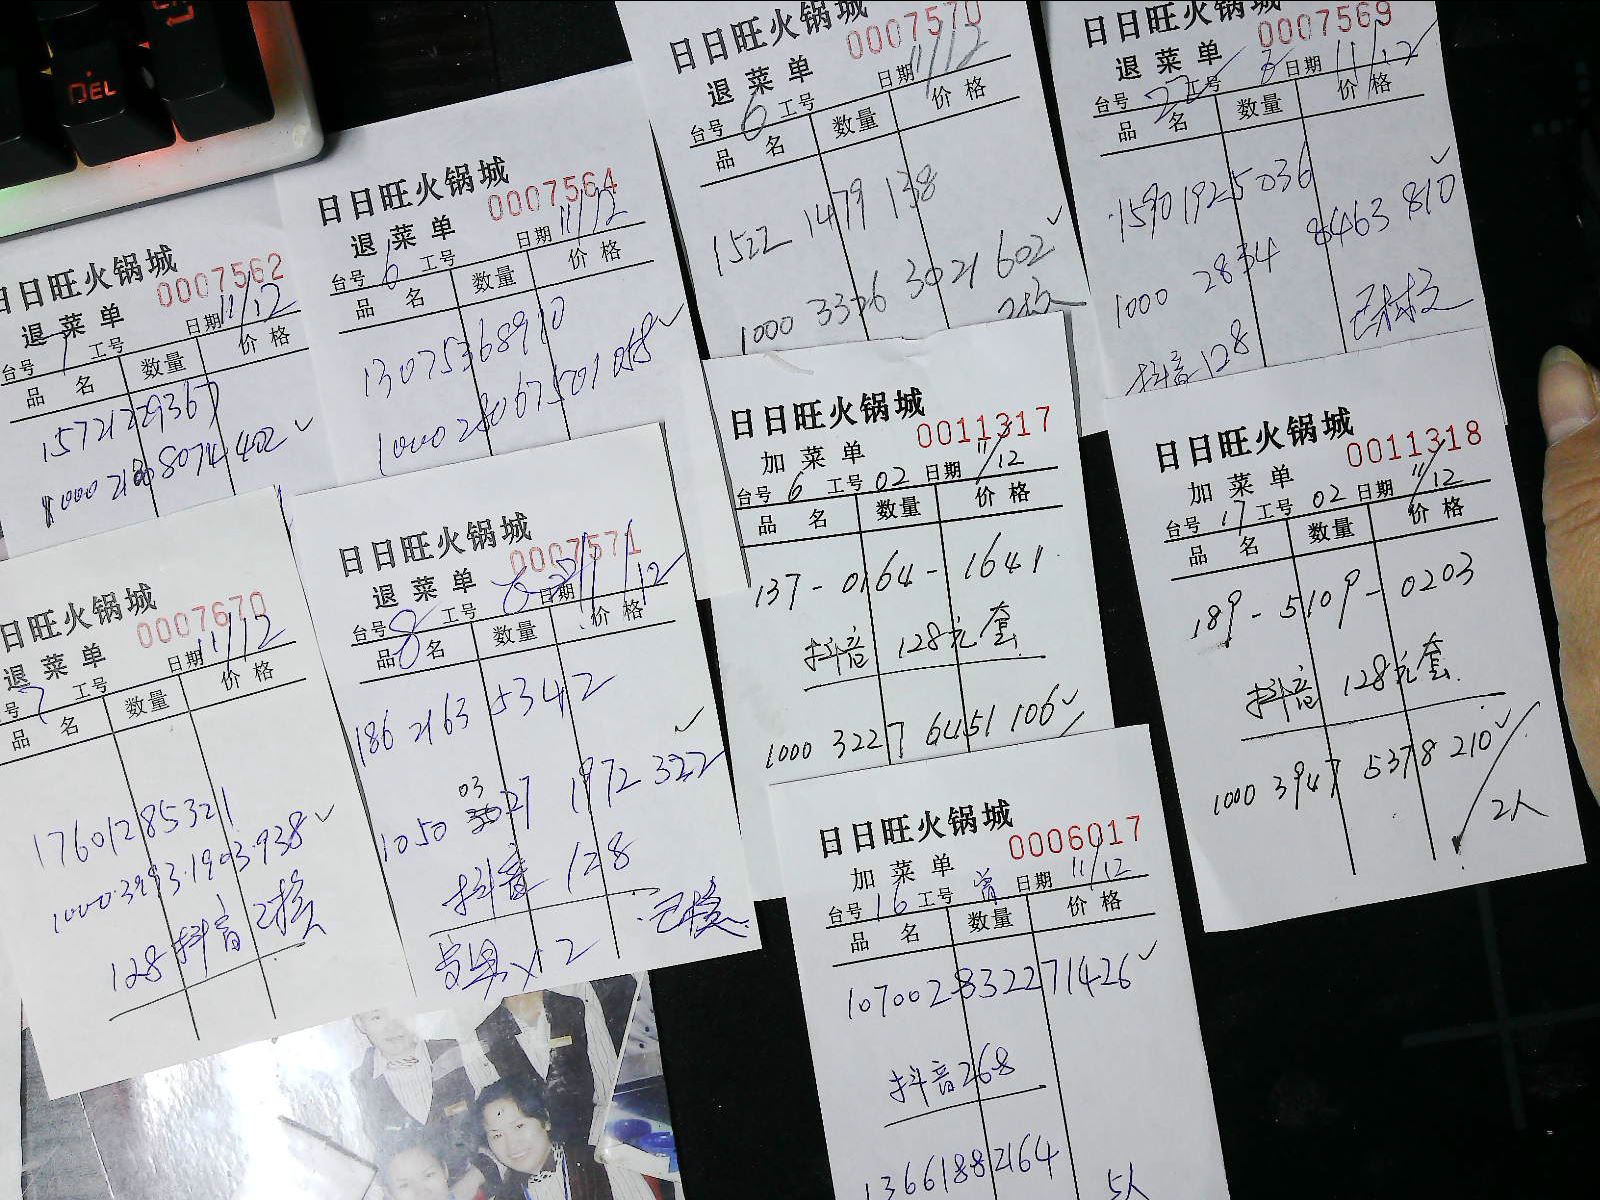 DEL
日日旺火锅城
0007562
退菜单
日期 11/12
台号 1 工号
品名 数量 价格
15721229367
8074402
日日旺火锅城
0007564
退菜单
日期 11/12
台号 6 工号
品名 数量 价格
13075368910
日日旺火锅城
0007570
退菜单
日期 11/12
台号 6 工号
品名 数量 价格
1522 1479 138
1000 3326 3021 602
日日旺火锅城
0007569
退菜单
日期 11/12
台号 22 工号
品名 数量 价格
15901925036
1000 2834 8463 810
抖音128
日日旺火锅城
0007670
退菜单
日期 11/12
号 7 工号
名 数量 价格
17601285321
1000.3993.1903.938
128抖音 已核
日日旺火锅城
0007571
退菜单
日期 11/12
台号 8 工号
品名 数量 价格
186 2163 5342
03
1050 27 1972 322
抖音 128
已核
x2
日日旺火锅城
0011317
加菜单
台号 6 工号 02 日期 11/12
品名 数量 价格
137-0164-1641
抖音 128元套
1000 3227 6451 106
日日旺火锅城
0011318
加菜单
台号 17 工号 02 日期 11/12
品名 数量 价格
189-5109-0203
抖音 128元套
1000 3947 5378 210
2人
日日旺火锅城
0006017
加菜单
台号 16 工号 曾 日期 11/12
品名 数量 价格
107002832271426
抖音268
13661882164
5人